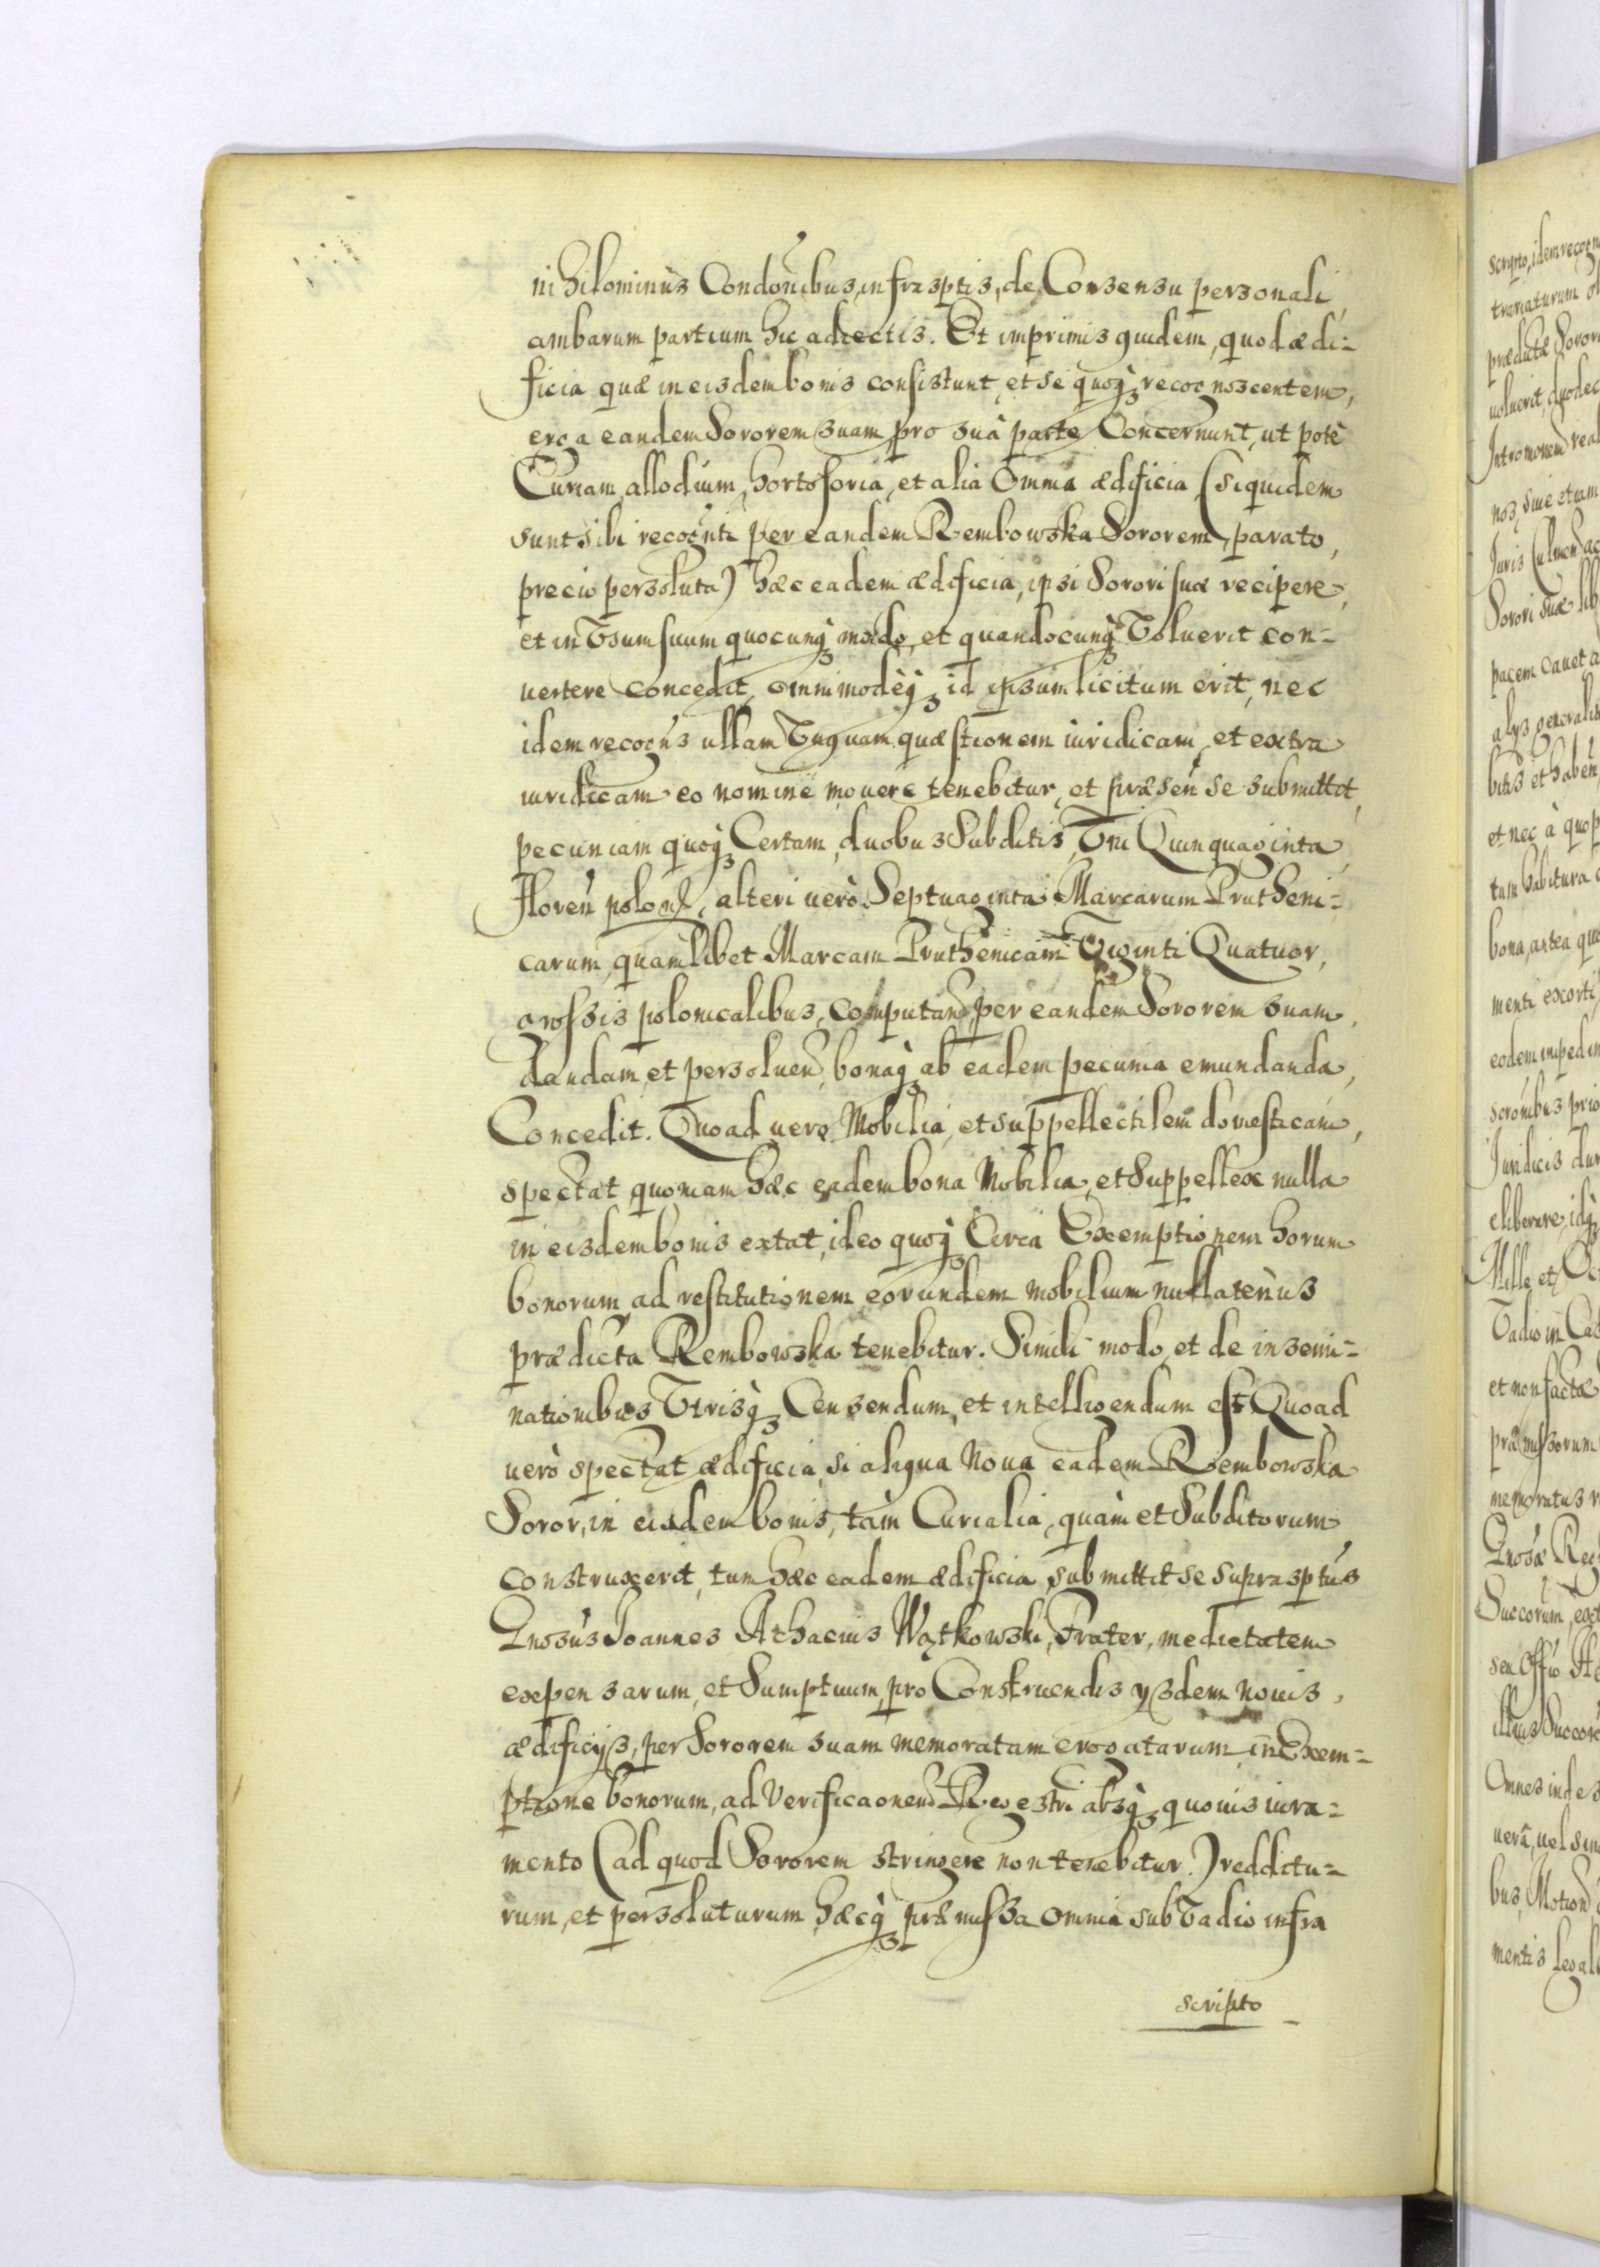 nihilominùs Condonibus, infrasptis, de Consensu personali
ambarum partium hic adiectis. Et imprimis quidem, quod ædi=
ficia quæ in eisdem bonis consistunt, et se quoq₃ recognoscentem,
erga eandem Sororem suam pro suà parte Concernunt, ut potè
Curiam, allodium, hortos, et alia Omnia ædificia (siquidem
sunt sibi recognti per eandem Rembowska Sororem, parato,
precio persoluta) hæc eadem ædificia, ipsi Sorori suæ recipere,
et in Vsum suum quocunq₃ modo, et quandocunq₃ Voluerit con=
uertere concedit, omnimodèq₃ id ipsum licitum erit, nec
idem recogns ullam Vnquam quæstionem iuridicam, et extra
iuridicam eo nomine mouere tenebitur, et præsen se submittit,
pecuniam quoq₃ Certam, duobus Subditis, Vni Quinquaginta
Floren polon, alteri uerò Septuaginta Marcarum Prutheni=
carum, quamlibet Marcam Pruthenicam Viginti Quatuor,
grossis polonicalibus, computand per eandem Sororem suam,
dandam et persoluen, bonaq₃ ab eadem pecunia emundanda,
Concedit. Quoad uero Mobilia, et suppellectilem domesticam,
spectat quoniam hæc eadem bona Mobilia, et Suppellex nulla
in eisdem bonis extat, ideo quoq₃ Circa Exemptionem horum
bonorum, ad restitutionem eorundem mobilium nullatenùs
prædicta Rembowska tenebitur. Simili modo, et de insemi=
nationibus Vtrisq₃ Censendum, et intelligendum est. Quoad
uerò spectat ædificia, si aliqua Noua eadem Rembowska
Soror, in eisdem bonis, tàm Curialia, quàm et Subditorum
construxerit, tum hæc eadem ædificia, submittit se suprasptus
Gnosus Joannes Achacius Wątkowski, Frater, medietatem
expensarum, et Sumptuum, pro Construendis ysdem nouis,
ædificijs, per Sororem suam memoratam erogatarum in Exem=
ptione bonorum, ad Verificaonem Regestri absq₃ quouis iura=
mento (ad quod Sororem stringere non tenebitur.) redditu=
rum, et persoluturum, hæcq₃ præmissa omnia sub Vadio infra
scripto